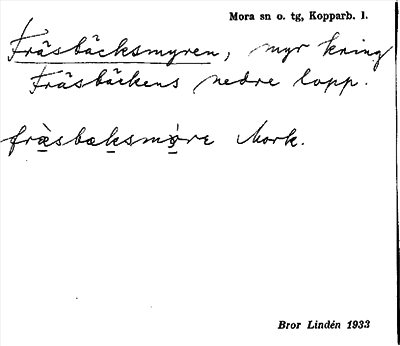 Mora sn o. tg, Kopparb. l.
Fräsbäcksmyren, myr kring
Fräsbäckens nedre lopp.
fræ̀sbæksmỳ̠re Mork.
Bror Lindén 1933